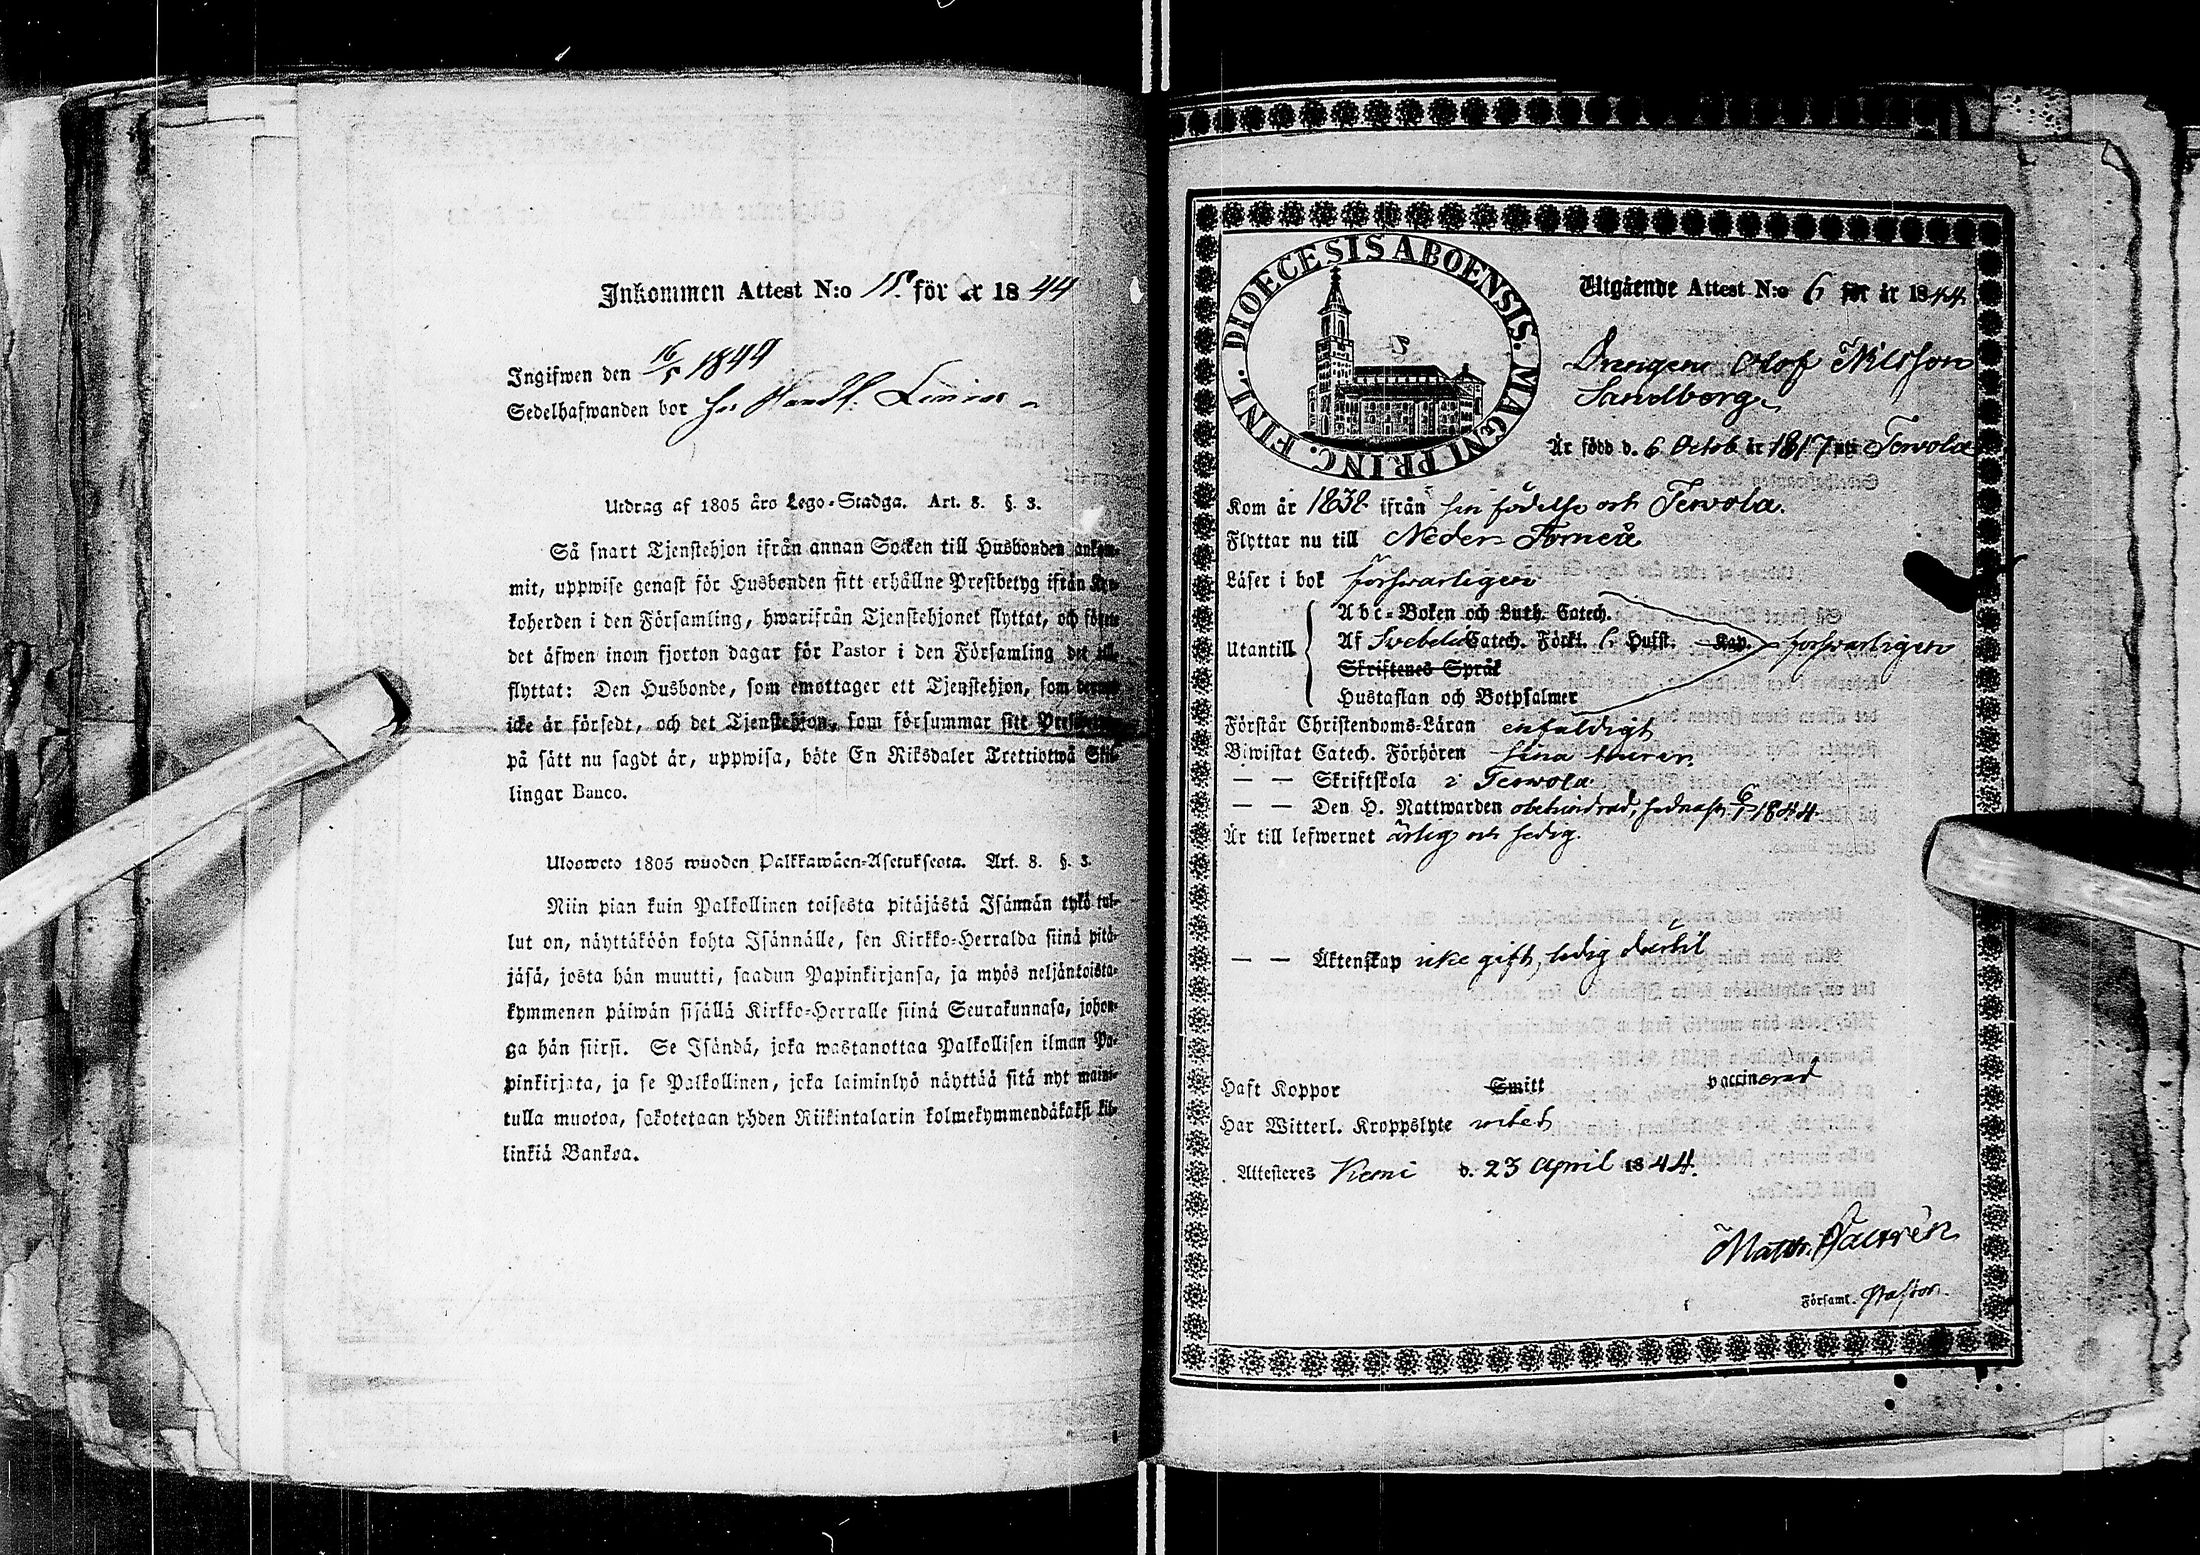 Inkommen Attest N:o 15. för år 1844
Ingifwen den 16/5 1844
Sedelhafwanden bor hos Handl.
Utdrag af 1805 års Lego-Stadga. Art. 8. §. 3.
Så snart Tjenstehjon ifrån annan Socken till Husbonden ankom-
mit, uppwise genast för Husbonden sitt erhållne Prestbetyg ifrån Kyr-
koherden i den Församling, hwarifrån Tjenstehjonet flyttat, och förete
det äfwen inom fjorton dagar för Pastor i den Församling det till-
flyttat: Den Husbonde, som emottager ett Tjenstehjon, som dermed
icke är försedt, och det Tjenstehjon, som försummar sitt Prestbetyg
på sätt nu sagdt är, uppwisa, böte En Riksdaler Trettiotwå Skil-
lingar Banco.
Ulosweto 1805 wuoden Palkkawäen-Asetuksesta. Art. 8. §. 3.
Niin pian kuin Palkollinen toisesta pitäjästä Isännän tykö tul-
lut on, näyttäköön kohta Isännälle, sen Kirkko-Herralda siinä pitä-
jäsä, josta hän muutti, saadun Papinkirjansa, ja myös neljäntoista-
kymmenen päiwän sisällä Kirkko-Herralle siinä Seurakunnasa, johon-
ga hän siirsi. Se Isändä, joka wastanottaa Palkollisen ilman Pa-
pinkirjata, ja se Palkollinen, joka laiminlyö näyttää sitä nyt maini-
tulla muotoa, sakotetaan yhden Riikintalarin kolmekymmendäkaksi kil-
linkiä Bankoa.
DIOECESIS ABOENSIS. MAGNI PRINC. FINL.
Utgående Attest N:o 6 för år 1844
Drengen Olof Nilsson
Sandberg
Är född d. 6 Octob år 1817 uti Terwola
Kom år 1838 ifrån sin födelse ort Terwola.
Flyttar nu till Neder Torneå
Läser i bok försvarligen
Utantill
Abc-Boken och Luth. Catech.
Af Svebelii Catech. Förkl. 6 Hufst. Kap. försvarligen
Skriftenes Språk
Hustaflan och Botpsalmer
Förstår Christendoms-Läran enfaldigt
Biwistat Catech. Förhören sina turer
— — Skriftskola i Terwola
— — Den H. Nattwarden obehindrad, sednast 6/1 1844.
Är till lefwernet ärlig och sedig.
— — Äktenskap icke gift, ledig dertil
Haft Koppor Smitt vaccinerad
Har Witterl. Kroppslyte vitet
Attesteres Kemi d. 23 April 1844.
Matth.
Församl. Pastor.